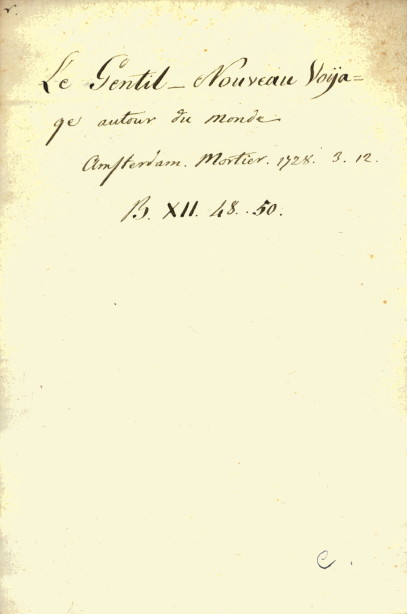 r.
Le Gentil_ Nouveau Voÿa=
ge autour du monde
Amsterdam. Mortier. 1728. 3. 12.
B. XII. 48. 50.
C.